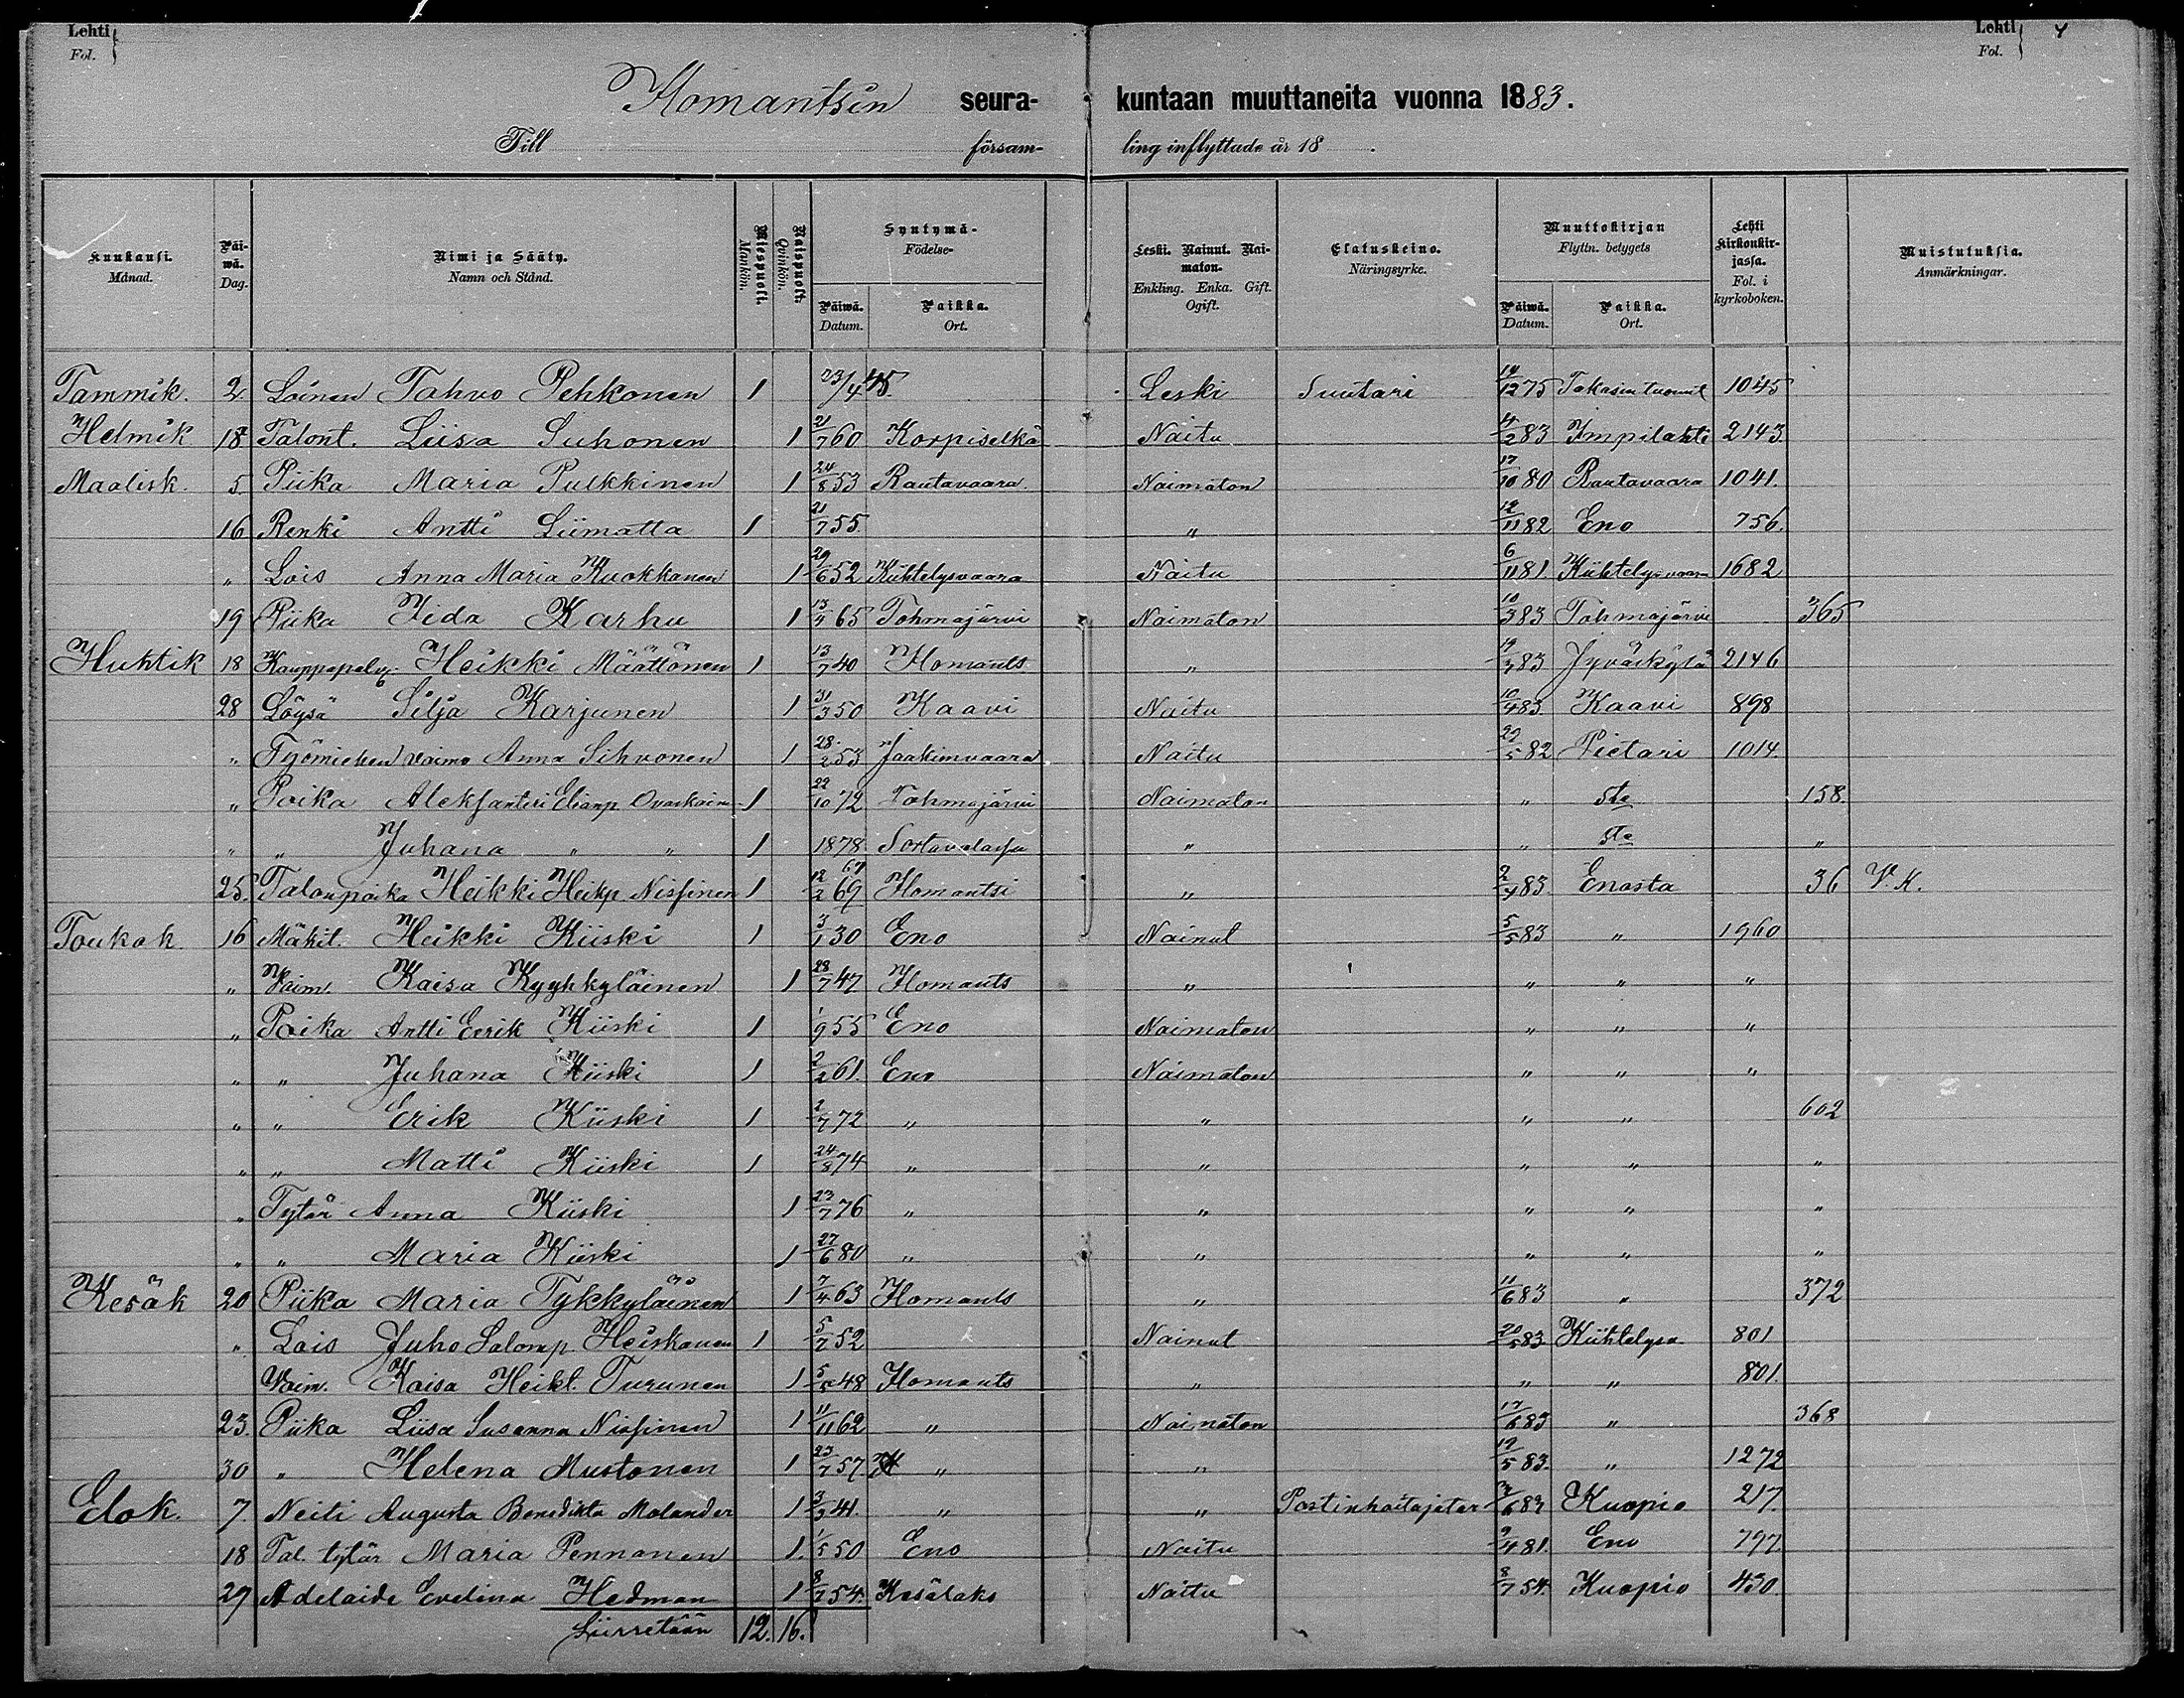 Lehti Fol. Lehti Fol. 4
Ilomantsin seura- kuntaan muuttaneita vuonna 1883.
Till församling inflyttade år 18 .
Kuukausi. Månad. Päiwä. Dag. Nimi ja Sääty. Namn och Stånd. Miespuoli. Mankön. Naispuoli. Qvinkön. Syntymä- Födelse- Päiwä. Datum. Paikka. Ort. Leski. Nainut. Naimaton. Enkling. Enka. Gift. Ogift. Elatuskeino. Näringsyrke. Muuttokirjan Flyttn. betygets Päiwä. Datum. Paikka. Ort. Lehti Kirkonkirjassa. Fol. i kyrkoboken. Muistutuksia. Anmärkningar.
Tammik. 2 Loinen Tahvo Pehkonen 1 23/4 45 Leski Suutari 14/12 75 1045
Helmik 18 Talont. Liisa Suhonen 1 21/7 60 Korpiselkä Naitu 14/2 83 Impilahti 2143
Maalisk. 5. Piika Maria Pulkkinen 1 24/8 53 Rautavaara Naimaton 17/10 80 Rautavaara 1041.
16 Renki Antti Liimatta 1 21/7 55 " 12/11 82 Eno 756.
" Lois Anna Maria Kuokkanen 1 29/6 52 Kiihtelysvaara Naitu 6/11 81. Kiihtelysvaara 1682
19 Piika Iida Karhu 1 13/4 65 Tohmajärvi Naimaton 10/3 83 Tohmajärvi 365
Huhtik 18 Heikki Määttönen 1 13/7 40 Ilomants " 83 Jyväskylä 2146
28 Löysä Silja Karjunen 1 31/3 50 Kaavi Naitu 10/4 83 Kaavi 898
" Työmiehen vaimo Anna Sihvonen 1 28/2 53 Jaakimvaara Naitu 29/5 82 Pietari 1014.
" Poika Aleksanteri 1 22/10 72 Tohmajärvi Naimaton " 158.
" " Juhana " " 1 1878 " " "
25. Talonpoika Heikki Heikp Nissinen 1 12/2 69 67 Ilomantsi " 2/4 83 Enosta 36 V.K.
Toukok. 16 Mäkit. Heikki Kiiski 1 3/1 30 Eno Nainut 5/5 83 " 1960
" Vaim. Kaisa Kyyhkyläinen 1 28/7 47 Ilomants " " " "
" Poika Antti Eerik Kiiski 1 1/9 55 Eno Naimaton " " "
" " Juhana Kiiski 1 2/2 61. Eno Naimaton " " "
" " Erik Kiiski 1 2/7 72 " " " " 602
" " Matti Kiiski 1 24/8 74 " " " " "
" Tytär Anna Kiiski 1 23/7 76 " " " " "
" " Maria Kiiski 1 27/6 80 " " " " "
Kesäk 20 Piika Maria Tykkyläinen 1 7/4 63 Ilomants " 11/6 83 " 372
" Lois Juho Salomp. Heiskanen 1 5/7 52 Nainut 20/5 83 Kiihtelysv 801
Vaim. Kaisa Heikt. Turunen 1 5/5 48 Ilomants " " " 801.
23. Piika Liisa Susanna Nissinen 1 11/11 62 " Naimaton 17/6 83 " 368
30 " Helena Mustonen 1 23/7 57 " " 19/5 83. " 1272
Elok. 7 Neiti Augusta Benedikta Molander 1 3/3 41. " " Postinhoitajatar 83 Kuopio 217.
18 Tal. tytär Maria Pennanen 1. 1/5 50 Eno Naitu 9/4 81. Eno 797.
27 Adelaide Evelina Hedman 1 8/7 54. Kesälaks Naitu 8/7 54. Kuopio 430.
Siirretään 12. 16.